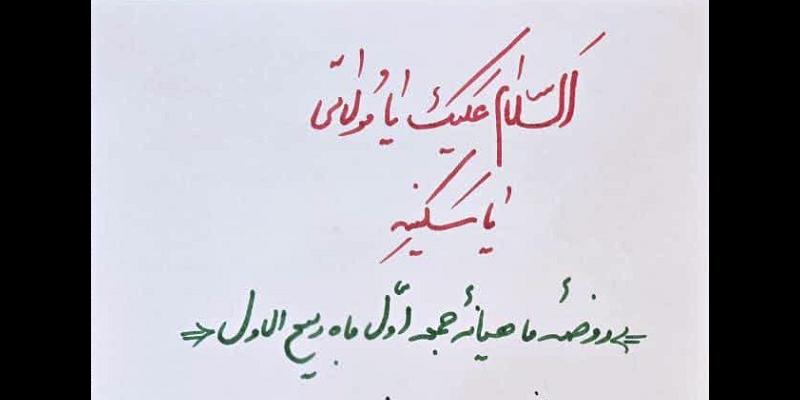 اَلسَّلامُ عَلَیْکِ یا مَولاتی
یا سَکینه
روضهٔ ماهیانهٔ جمعه اوّل ماه ربیع الاول